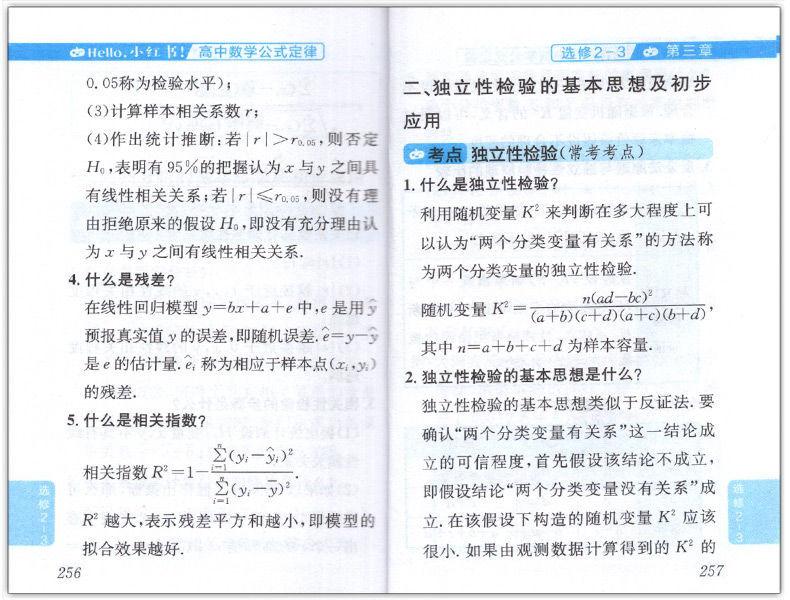 Hello, 小红书! 高中数学公式定律
0.05称为检验水平);
(3)计算样本相关系数 r;
(4)作出统计推断:若|r|>r₀.₀₅,则否定
H₀,表明有 95%的把握认为 x 与 y 之间具
有线性相关关系;若|r|≤r₀.₀₅,则没有理
由拒绝原来的假设 H₀,即没有充分理由认
为 x 与 y 之间有线性相关关系.
4. 什么是残差?
在线性回归模型 y=bx+a+e 中,e 是用 ŷ
预报真实值 y 的误差,即随机误差. ê=y-ŷ
是 e 的估计量. êᵢ 称为相应于样本点(xᵢ,yᵢ)
的残差.
5. 什么是相关指数?
相关指数 R²=1-\frac{\sum_{i=1}^{n}(yᵢ-ŷᵢ)²}{\sum_{i=1}^{n}(yᵢ-ȳ)²}.
R² 越大,表示残差平方和越小,即模型的
拟合效果越好.
选修2-3
256
选修2-3 第三章
二、独立性检验的基本思想及初步
应用
考点 独立性检验(常考考点)
1. 什么是独立性检验?
利用随机变量 K² 来判断在多大程度上可
以认为“两个分类变量有关系”的方法称
为两个分类变量的独立性检验.
随机变量 K²=\frac{n(ad-bc)²}{(a+b)(c+d)(a+c)(b+d)},
其中 n=a+b+c+d 为样本容量.
2. 独立性检验的基本思想是什么?
独立性检验的基本思想类似于反证法.要
确认“两个分类变量有关系”这一结论成
立的可信程度,首先假设该结论不成立,
即假设结论“两个分类变量没有关系”成
立.在该假设下构造的随机变量 K² 应该
很小.如果由观测数据计算得到的 K² 的
选修2-3
257